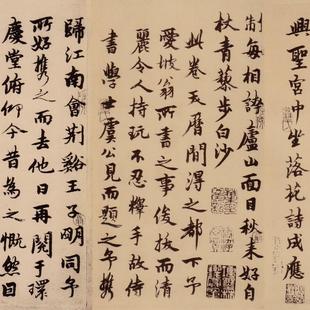 興聖宮中坐落花詩成應
制每相誇廬山面目秋来好自
杖青藜步白沙
此卷天曆間得之都下予
愛坡翁所書之事俊拔而清
麗令人持玩不忍釋手故侍
書學士虞公見而題之予攜
歸江南會荆谿王子明同予
所好攜之而去他日再閱于環
慶堂俯仰今昔為之慨然因